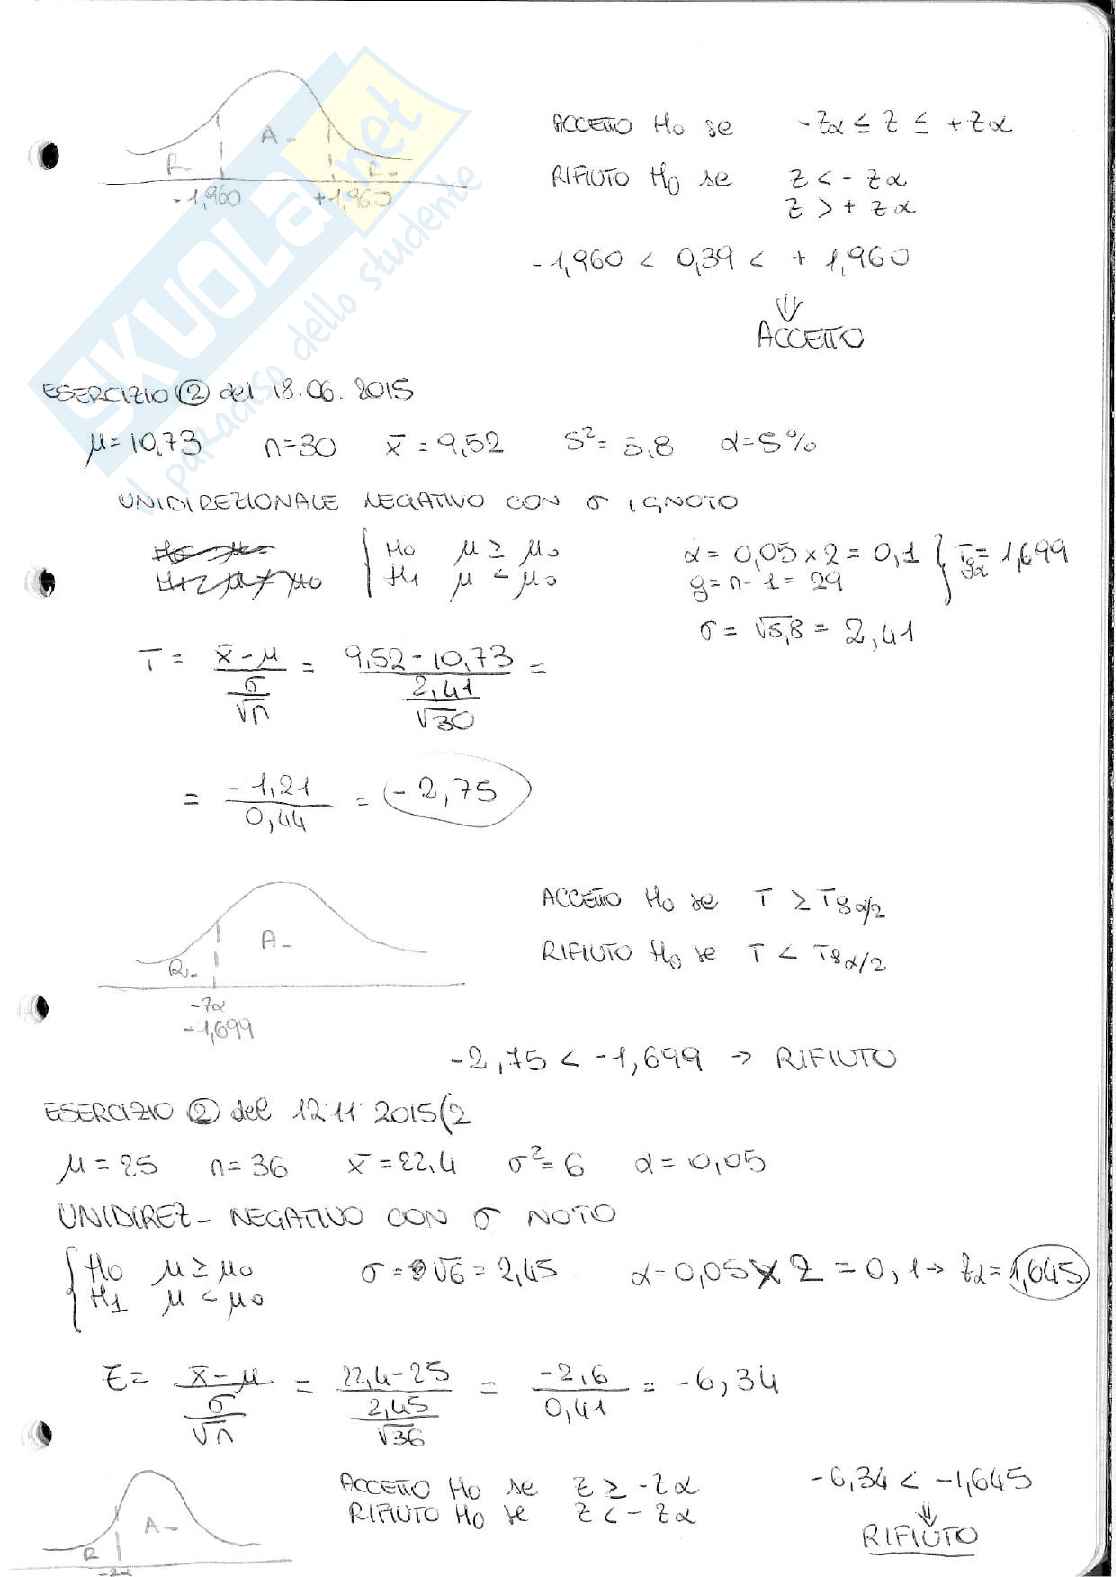 SKUOLA.net
il paradiso dello studente
A -
R -
R -
-1,960
+1,960
ACCETTO H0 se -Zα ≤ Z ≤ +Zα
RIFIUTO H0 se Z < - Zα
Z > + Zα
-1,960 < 0,39 < + 1,960
⇓
ACCETTO
ESERCIZIO ② del 18.06.2015
μ=10,73 n=30 x̄ = 9,52 S²= 5,8 α=5%
UNIDIREZIONALE NEGATIVO CON σ IGNOTO
{ H0 μ ≥ μ0
H1 μ < μ0
α = 0,05 x 2 = 0,1 } Tgα = 1,699
g = n - 1 = 29
σ = √5,8 = 2,41
T = (x̄ - μ)/(σ/√n) = (9,52 - 10,73)/(2,41/√30) =
= -1,21/0,44 = -2,75
A -
R -
-Zα
-1,699
ACCETTO H0 se T ≥ Tgα/2
RIFIUTO H0 se T < Tgα/2
-2,75 < -1,699 → RIFIUTO
ESERCIZIO ② del 12 11 2015(2
μ = 25 n = 36 x̄ = 22,4 σ² = 6 α = 0,05
UNIDIREZ- NEGATIVO CON σ NOTO
{ H0 μ ≥ μ0
H1 μ < μ0
σ = √6 = 2,45 α - 0,05 x 2 = 0,1 → Zα = 1,645
Z = (x̄ - μ)/(σ/√n) = (22,4 - 25)/(2,45/√36) = -2,6/0,41 = -6,34
A -
R
-Zα
ACCETTO H0 se Z ≥ -Zα
RIFIUTO H0 se Z < - Zα
-6,34 < -1,645
⇓
RIFIUTO